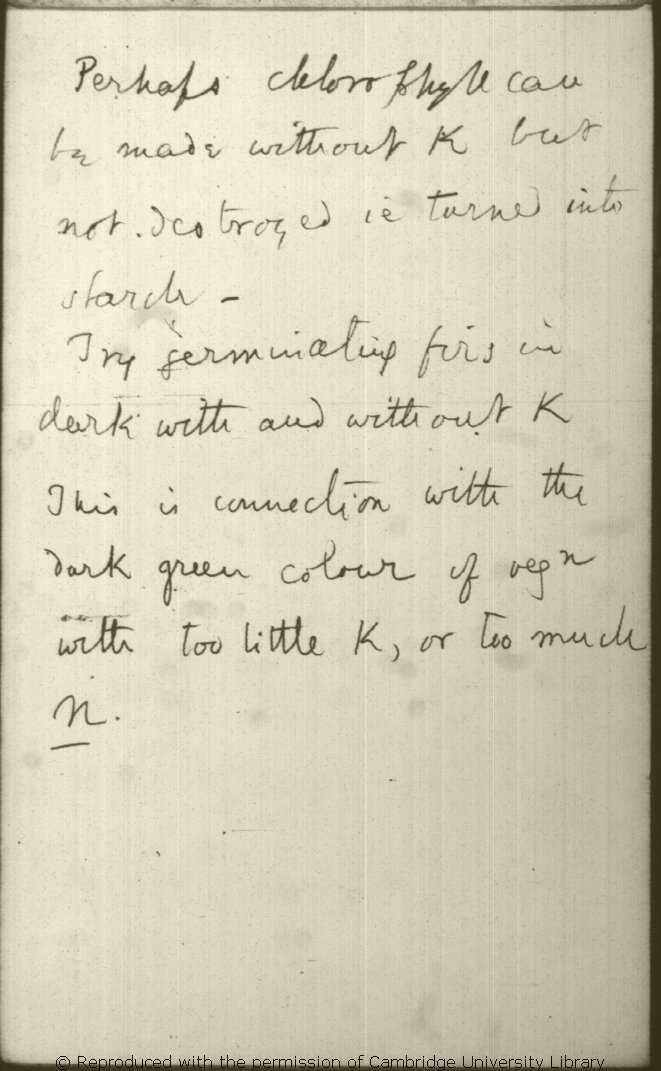 Perhaps chlorophyll can
be made without K but
not destroyed ie turned into
starch –
Try germinating firs in
dark with and without K
This is connection with the
dark green colour of vegn
with too little K, or too much
N.
© Reproduced with the permission of Cambridge University Library